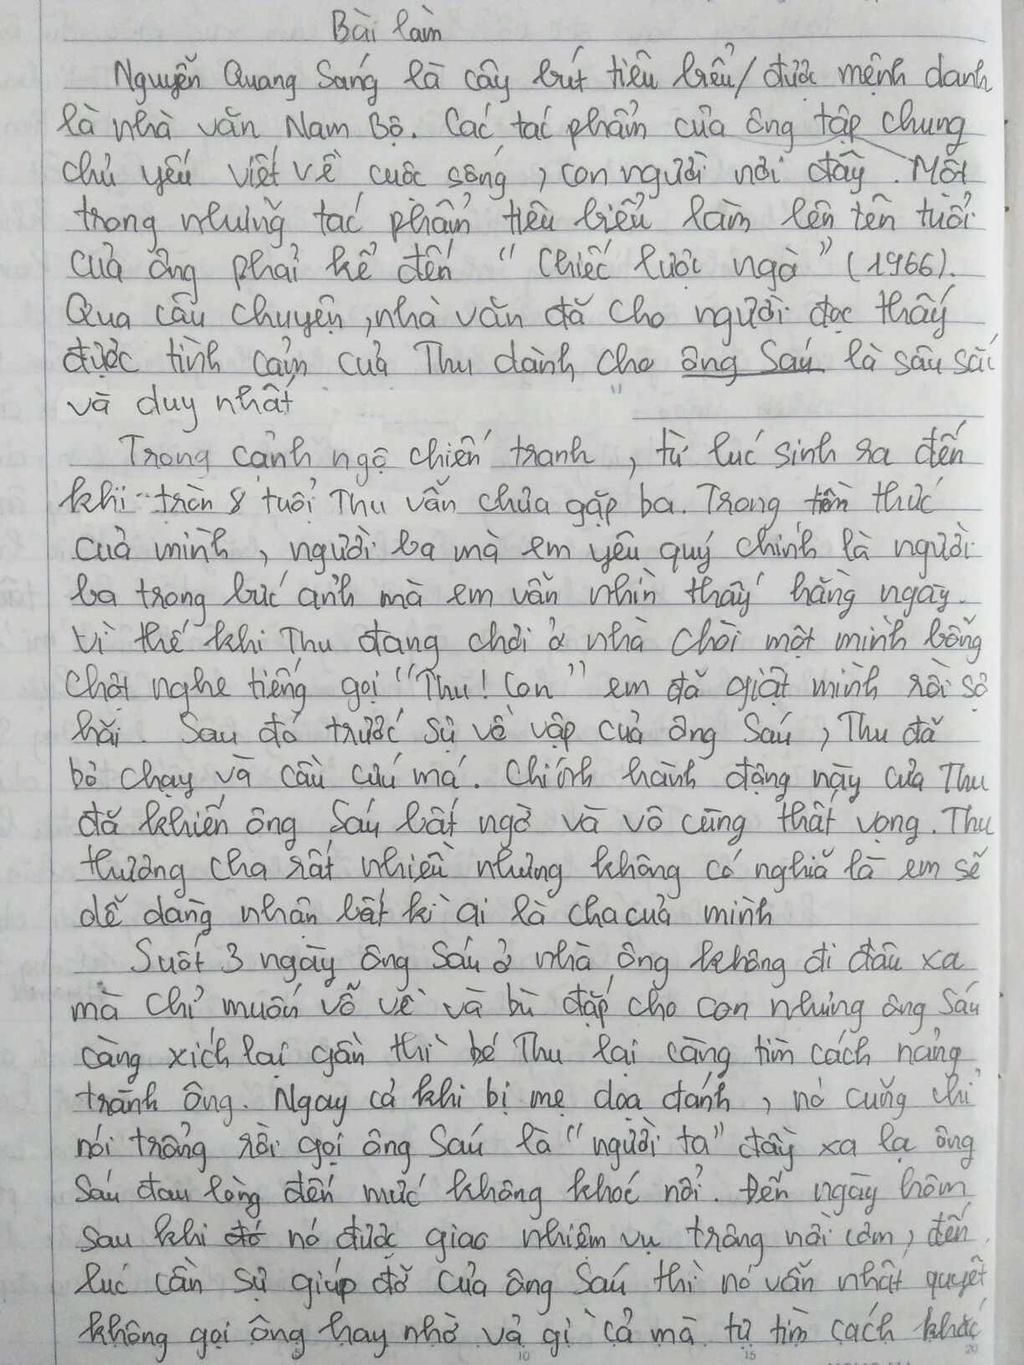 Bài làm
Nguyễn Quang Sáng là cây bút tiêu biểu/ được mệnh danh
là nhà văn Nam Bộ. Các tác phẩm của ông tập chung
chủ yếu viết về cuộc sống, con người nơi đây. Một
trong những tác phẩm tiêu biểu làm lên tên tuổi
của ông phải kể đến " Chiếc lược ngà" (1966).
Qua câu chuyện, nhà văn đã cho người đọc thấy
được tình cảm của Thu dành cho ông Sáu là sâu sắc
và duy nhất
Trong cảnh ngộ chiến tranh, từ lúc sinh ra đến
khi tròn 8 tuổi Thu vẫn chưa gặp ba. Trong thức
của mình, người ba mà em yêu quý chính là người
ba trong bức ảnh mà em vẫn nhìn thấy hằng ngày.
Vì thế khi Thu đang chơi ở nhà chòi một mình bỗng
chột nghe tiếng gọi "Thu! Con" em đã giật mình rồi sợ
hãi. Sau đó trước sự vồ vập của ông Sáu, Thu đã
bỏ chạy và cầu cứu má. Chính hành động này của Thu
đã khiến ông Sáu bất ngờ và vô cùng thất vọng. Thu
thương cha rất nhiều nhưng không có nghĩa là em sẽ
dễ dàng nhận bất kì ai là cha của mình
Suốt 3 ngày ông Sáu ở nhà ông không đi đâu xa
mà chỉ muốn vỗ về và bù đắp cho con nhưng ông Sáu
càng xích lại gần thì bé Thu lại càng tìm cách nảng
tránh ông. Ngay cả khi bị mẹ dọa đánh, nó cũng chỉ
nói trổng rồi gọi ông Sáu là "người ta" đầy xa lạ ông
Sáu đau lòng đến mức không khóc nổi. Đến ngày hôm
sau khi đó nó được giao nhiệm vụ trông nồi cơm, đến
lúc cần sự giúp đỡ của ông Sáu thì nó vẫn nhất quyết
không gọi ông hay nhờ vả gì cả mà tự tìm cách khác